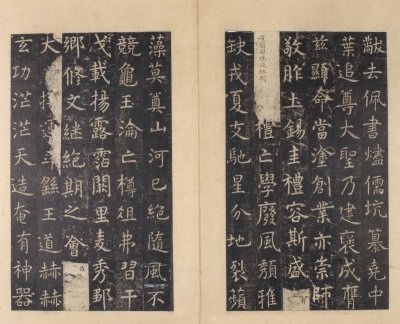 黻去佩書燼儒坑纂堯中
葉追尊大聖乃建褒成膺
茲顯命當塗創業亦崇師
敬胙土錫圭禮容斯盛
禮亡學廢風頹雅
缺戎夏交馳星分地裂蘋
藻莫奠山河已絕隨風不
競龜玉淪亡樽俎弗習干
戈載揚露霑闕里麦秀鄒
鄉修文継絕期之會
大運率繇王道赫赫
玄功茫茫天造奄有神器